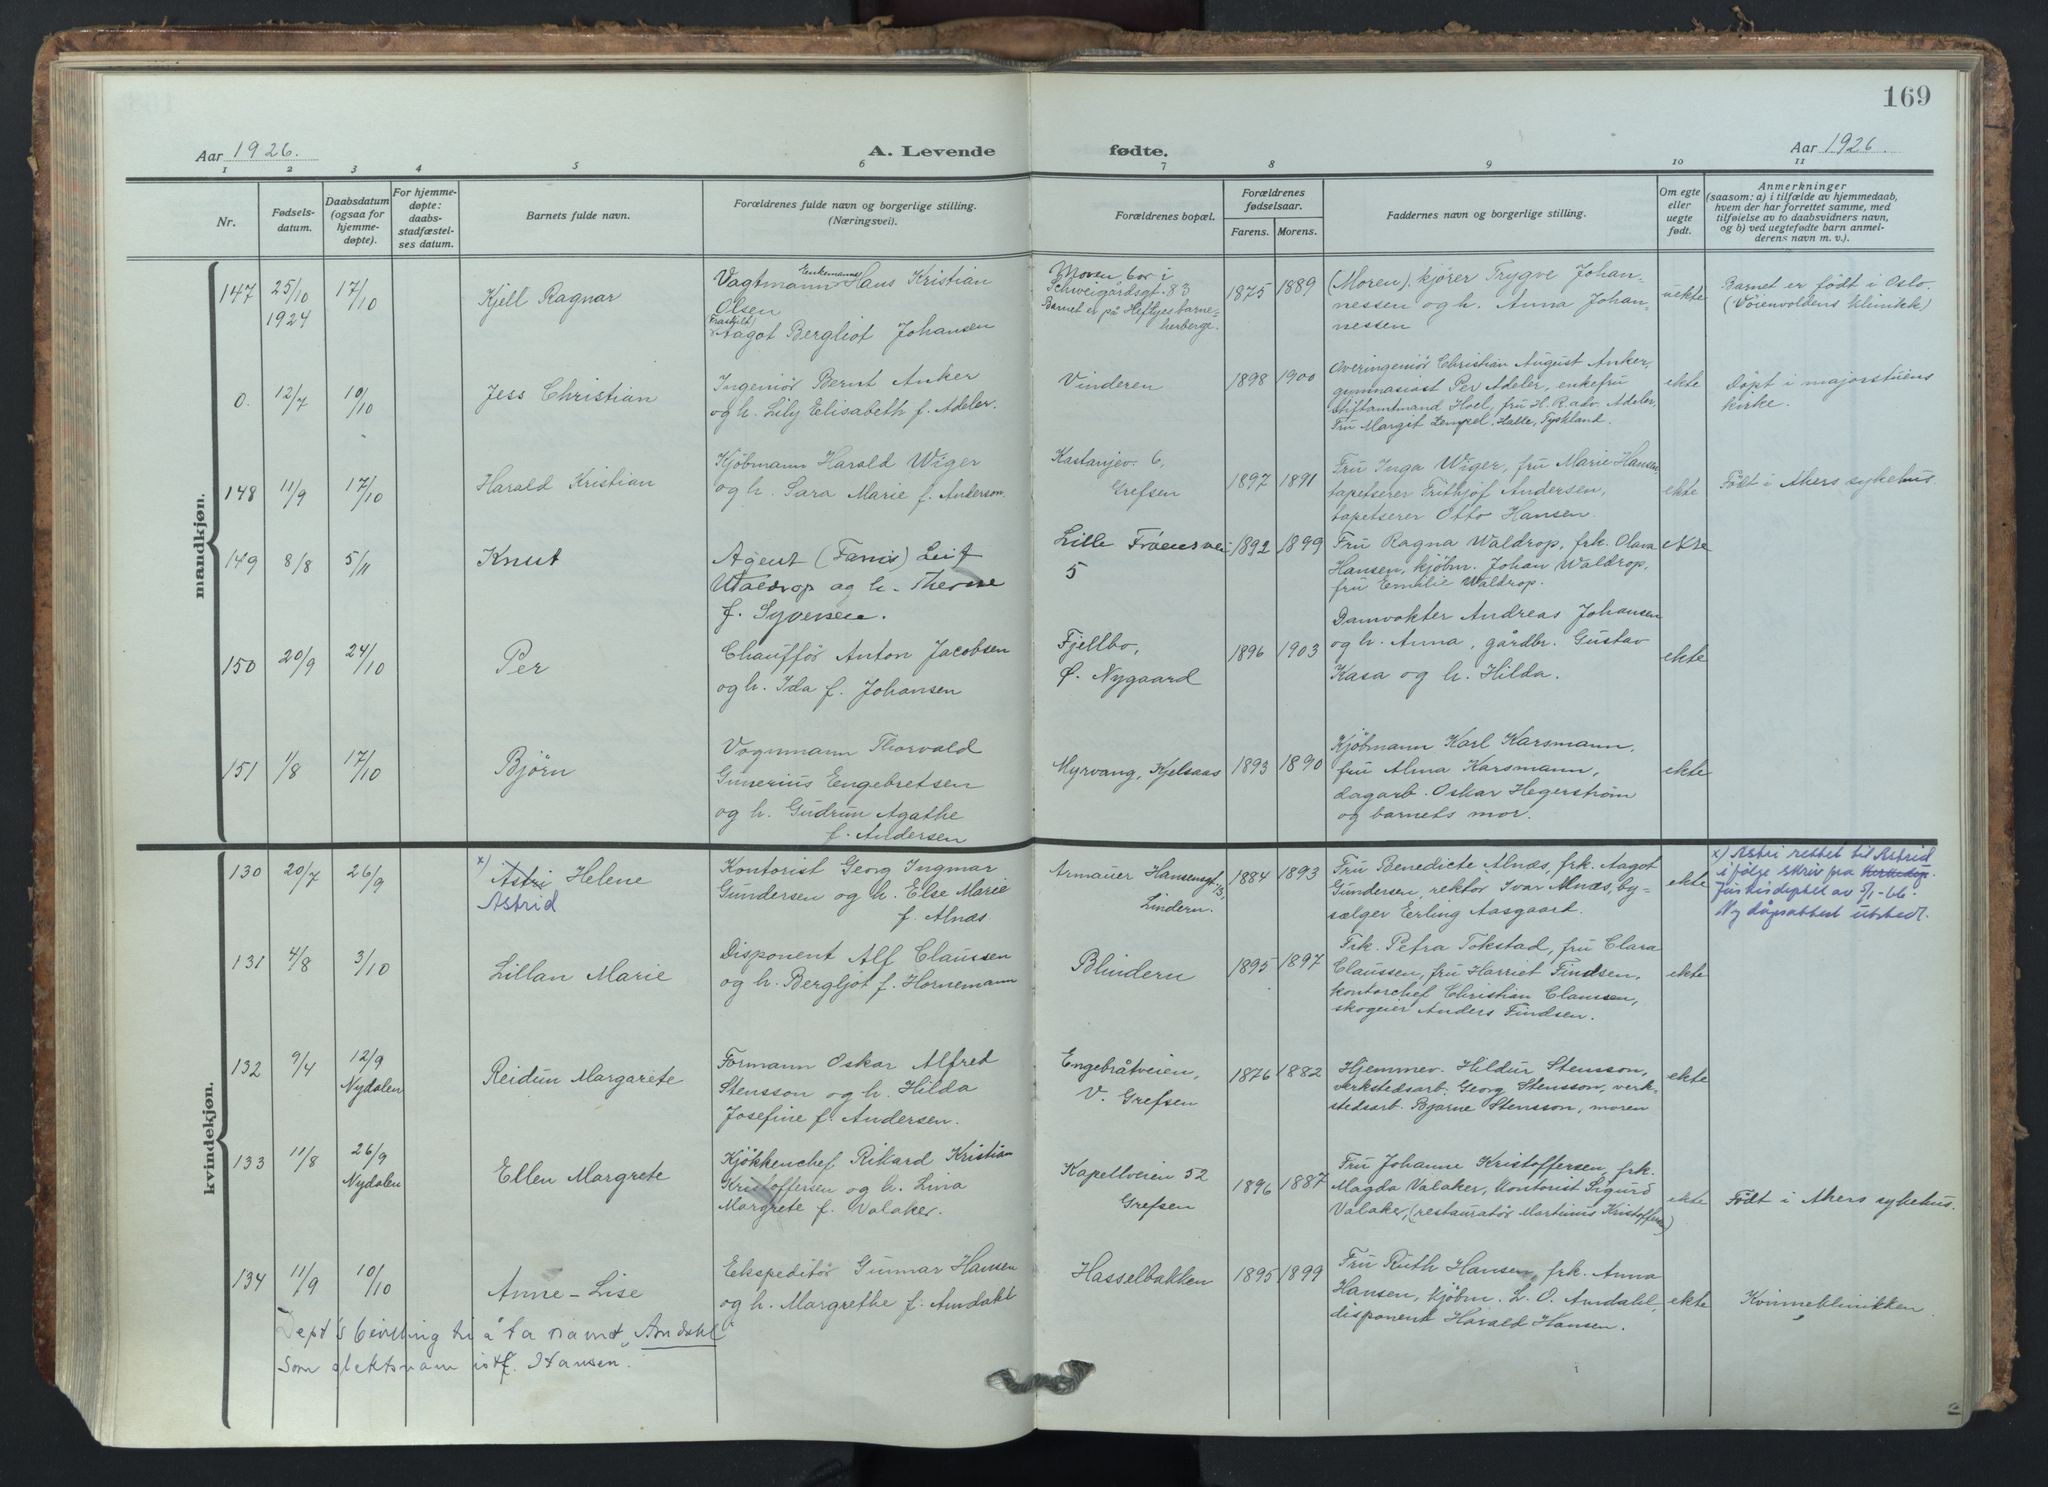 169
Aar 1926.
A. Levende
fødte.
Aar 1926.
1 2 3 4 5 6 7 8 9 10 11
Nr.
Fødsels-
datum.
Daabsdatum
(ogsaa for
hjemme-
døpte).
For hjemme-
døpte:
daabs-
stadfæstel-
ses datum.
Barnets fulde navn.
Forældrenes fulde navn og borgerlige stilling.
(Næringsvei).
Forældrenes bopæl.
Forældrenes
fødselsaar.
Farens. Morens.
Faddernes navn og borgerlige stilling.
Om egte
eller
uegte
født.
Anmerkninger
(saasom: a) i tilfælde av hjemmedaab,
hvem der har forrettet samme, med
tilføielse av to daabsvidners navn,
og b) ved uegtefødte barn anmel-
derens navn m. v.).
mandkjøn.
147
25/10
1924
17/10
Kjell Ragnar
Enkemann
Vagtmann Hans Kristian
Olsen
(Fraskilt)
Aagot Bergliot Johansen
Moren bor i
Schweigårdsgt. 83
Barnet er på Heftyes barne-
herberge.
1875 1889
(Moren), kjører Trygve Johan-
nessen og h. Anna Johan-
nessen
uekte
Barnet er født i Oslo.
(Vøienvoldens klinikk)
0.
12/7
10/10
Jess Christian
Ingeniør Bernt Anker
og h. Lily Elisabeth f. Adeler.
Vinderen
1898 1900
Overingeniør Christian August Anker,
gymnasiast Per Adeler, enkefru
stiftamtmand Hoel, fru H. R. adv. Adeler,
Fru Margit Zempel, Halle, Tyskland.
ekte
Døpt i majorstuens
kirke.
148
11/9
17/10
Harald Kristian
Kjøbmann Harald Wiger
og h. Sara Marie f. Anderson.
Kastanjev. 6,
Grefsen
1897 1891
Fru Inga Wiger, fru Marie Hansen
tapetserer Frithjof Andersen,
tapetserer Otto Hansen.
ekte
Født i Akers sykehus.
149
8/8
5/11
Knut
Agent (Farvis) Leif
Waldrop og h. Therese
f. Syversen.
Lille Frøensvei
5
1892 1899
Fru Ragna Waldrop, frk. Olava
Hansen, kjøbm. Johan Waldrop,
fru Emilie Waldrop.
ekte
150
20/9
24/10
Per
Chauffør Anton Jacobsen
og h. Ida f. Johansen
Fjellbo,
Ø. Nygaard
1896 1903
Damvokter Andreas Johansen
og h. Anna, gårdbr. Gustav
Kasa og h. Hilda.
ekte
151
1/8
17/10
Bjørn
Vognmann Thorvald
Gunerius Engebretsen
og h. Gudrun Agathe
f. Andersen
Myrvang, Kjelsaas
1893 1890
Kjøbmann Karl Karsmann,
fru Alma Karsmann,
dagarb. Oskar Hegerstrøm
og barnets mor.
ekte
kvindekjøn.
130
20/7
26/9
x) Astri Helene
Astrid
Kontorist Georg Ingmar
Gundersen og h. Else Marie
f. Alnæs.
Armauer Hansensgt. 13,
Lindern.
1884 1893
Fru Benedicte Alnæs, frk. Aagot
Gundersen, rektor Ivar Alnæs, by-
selger Erling Aasgaard.
ekte
x) Astri rettet til Astrid
ifølge skriv fra Kirkedep.
Justisdeptet av 5/1-66.
Ny dåpsattest utstedt.
131
4/8
3/10
Lillan Marie
Disponent Alf Claussen
og h. Bergljot f. Hornemann
Blindern
1895 1897
Frk. Petra Tokstad, fru Clara
Claussen, fru Harriet Findsen,
kontorchef Christian Claussen,
skogeier Anders Findsen.
ekte
132
9/4
12/9
Nydalen
Reidun Margarete
Formann Oskar Alfred
Stensson og h. Hilda
Josefine f. Andersen.
Engebråtveien,
V. Grefsen
1876 1882
Hjemmev. Hildur Stensson,
verkstedsarb. Georg Stensson, verk-
stedsarb. Bjarne Stensson, moren
ekte
133
11/8
26/9
Nydalen
Ellen Margrete
Kjøkkenchef Rikard Kristian
Kristoffersen og h. Lina
Margrete f. Valaker.
Kapellveien 52
Grefsen
1896 1887
Fru Johanne Kristoffersen, frk.
Magda Valaker, kontorist Sigurd
Valaker, (restauratør Martinius Kristoffersen)
ekte
Født i Akers sykehus.
134
11/9
10/10
Anne-Lise
Ekspeditør Gunnar Hansen
og h. Margrethe f. Amdahl
Hasselbakken
1895 1899
Fru Ruth Hansen, frk. Anna
Hansen, kjøbm. L. O. Amdahl,
disponent Harald Hansen.
ekte
Kvinneklinikken
Dept's bevilling til å ta navnet „Amdahl"
som slektsnavn istf. Hansen.